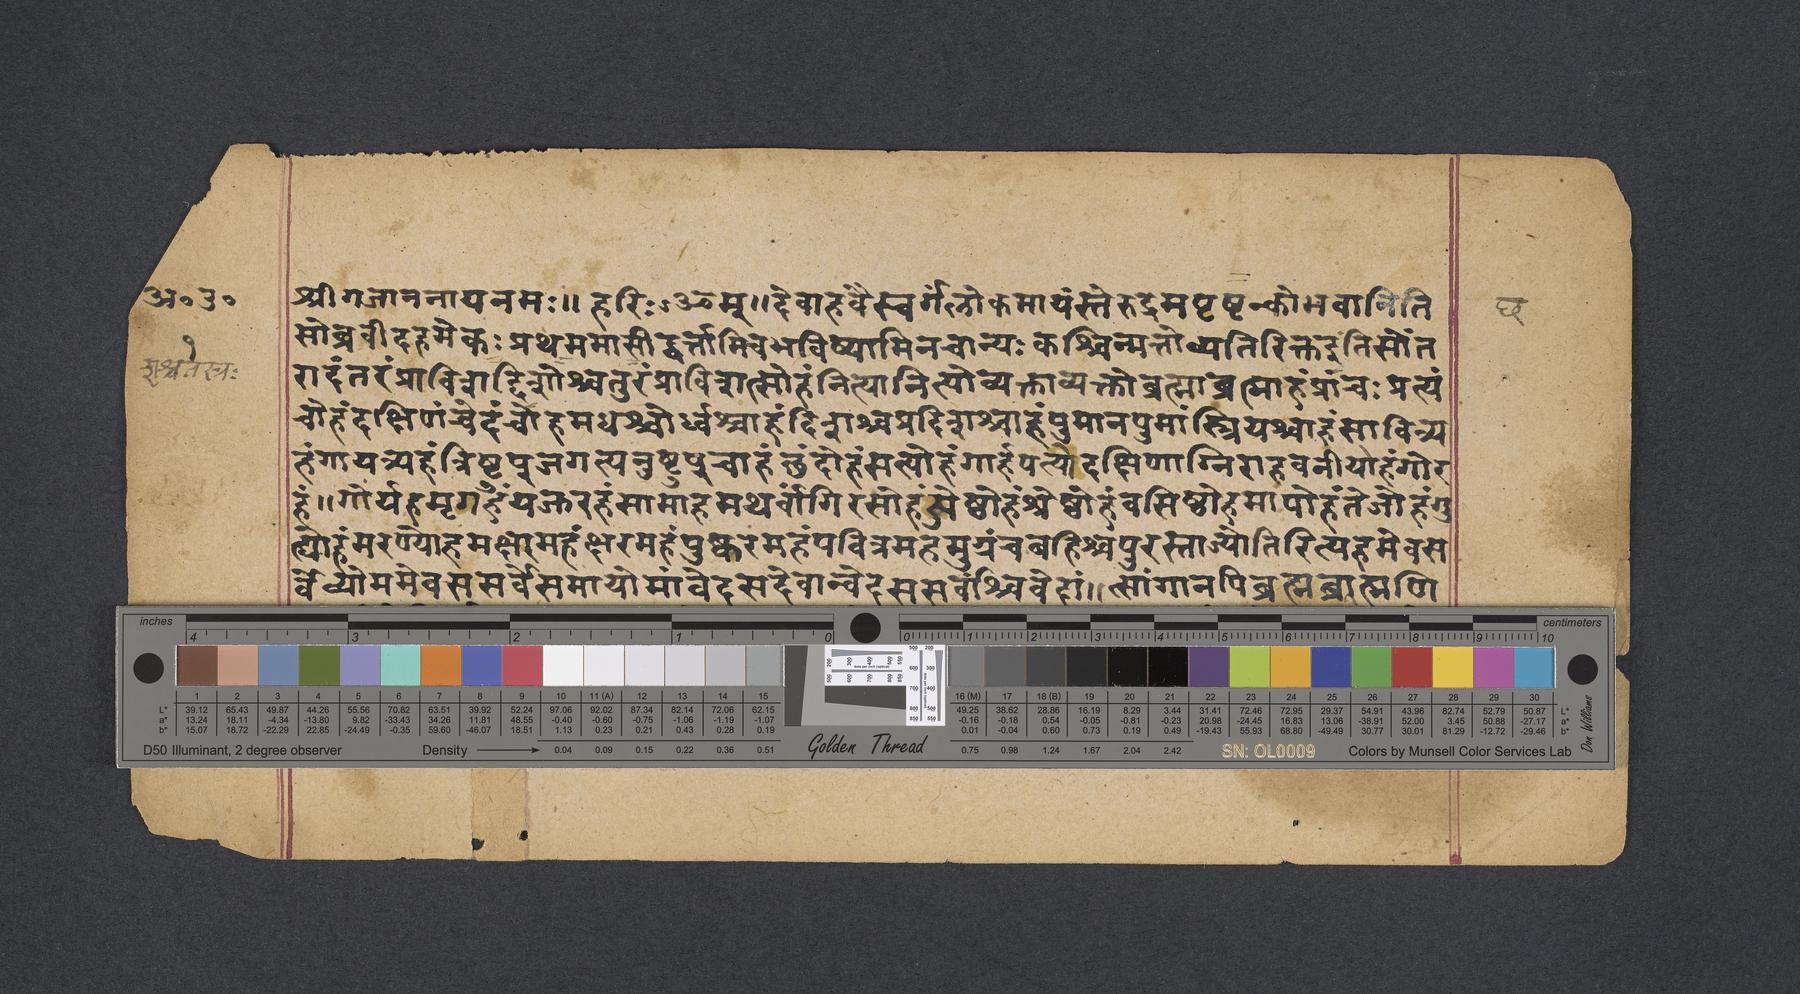 अ॰उ॰
१
श्रीगजाननायनमः॥ हरिःॐम्॥देवाहवैस्वर्गंलोकमायंस्तेरुद्रमपृष्टन्कोभवानिति
छ
सोब्रवीदहमेकः प्रथममासीद्वर्त्तामिचभविष्यामिनचान्यः कश्चिन्मत्तोव्यतिरिक्तइतिसोंत
रादंतरंप्राविशद्दिशोश्चतुरंप्राविशत्सोहंनित्यानित्योव्यक्ताव्यक्तोब्रह्माब्रह्माहंप्रांचः प्रत्यं
चोहंदक्षिणंचैदंचोहमधश्चोर्ध्वश्चाहंदिशश्चप्रदिशश्चाहंपुमानपुमांस्त्रियश्चाहंसावित्र्य
हंगायत्र्यहंत्रिष्टुपुजगत्यनुष्टुपुचाहंछंदोहंसत्योहंगार्हपत्योदक्षिणाग्निराहवनीयोहंगोर
हं॥गौर्यहमृगहंयजुरहंसामाहमथर्वांगिरसोहंज्येष्ठोहंश्रेष्ठोहंवसिष्ठोहमापोहंतेजोहंगु
ह्योहंमरण्योहमक्षरमहंक्षरमहंपुष्करमहंपवित्रमहमुग्रंचबहिश्चपुरस्ताज्योतिरित्यहमेवस
र्वेव्योममेवससर्वेसमायोमांवेदसदेवान्वेदससर्वांश्चिवेदां॥त्सांगानपिब्रह्मब्राह्मणि
inches
4 3 2 1 0
0 1 2 3 4 5 6 7 8 9 10
centimeters
1 2 3 4 5 6 7 8 9 10 11 (A) 12 13 14 15 16 (M) 17 18 (B) 19 20 21 22 23 24 25 26 27 28 29 30
L* 39.12 65.43 49.87 44.26 55.56 70.82 63.51 39.92 52.24 97.06 92.02 87.34 82.14 72.06 62.15 49.25 38.62 28.86 16.19 8.29 3.44 31.41 72.46 72.95 29.37 54.91 43.96 82.74 52.79 50.87 L*
a* 13.24 18.11 -4.34 -13.80 9.82 -33.43 34.26 11.81 48.55 -0.40 -0.60 -0.75 -1.06 -1.19 -1.07 -0.16 -0.18 0.54 -0.05 -0.81 -0.23 20.98 -24.45 16.83 13.06 -38.91 52.00 3.45 50.88 -27.17 a*
b* 15.07 18.72 -22.29 22.85 -24.49 -0.35 59.60 -46.07 18.51 1.13 0.23 0.21 0.43 0.28 0.19 0.01 -0.04 0.60 0.73 0.19 0.49 -19.43 55.93 68.80 -49.49 30.77 30.01 81.29 -12.72 -29.46 b*
D50 Illuminant, 2 degree observer
Density 0.04 0.09 0.15 0.22 0.36 0.51
Golden Thread
0.75 0.98 1.24 1.67 2.04 2.42
SN: OL0009
Colors by Munsell Color Services Lab
Don Williams